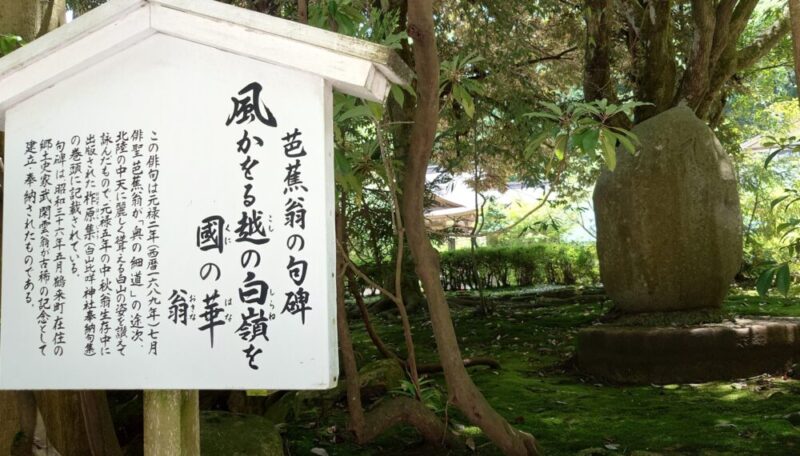 芭蕉翁の句碑
風かをる越の白嶺を
こし
しらね
國の華
くに
はな
翁
おきな
この俳句は元禄二年(西暦一六八九年)七月
俳聖芭蕉翁が「奥の細道」の途次、
北陸の中天に麗しく聳える白山の姿を讃えて
詠んだもので、元禄五年の中秋、翁生存中に
出版された柞原集(白山比咩神社奉納句集)
の巻頭に記載されている。
句碑は、昭和三十六年五月鶴来町在住の
郷土史家武閑雲翁が古稀の記念として
建立、奉納されたものである。